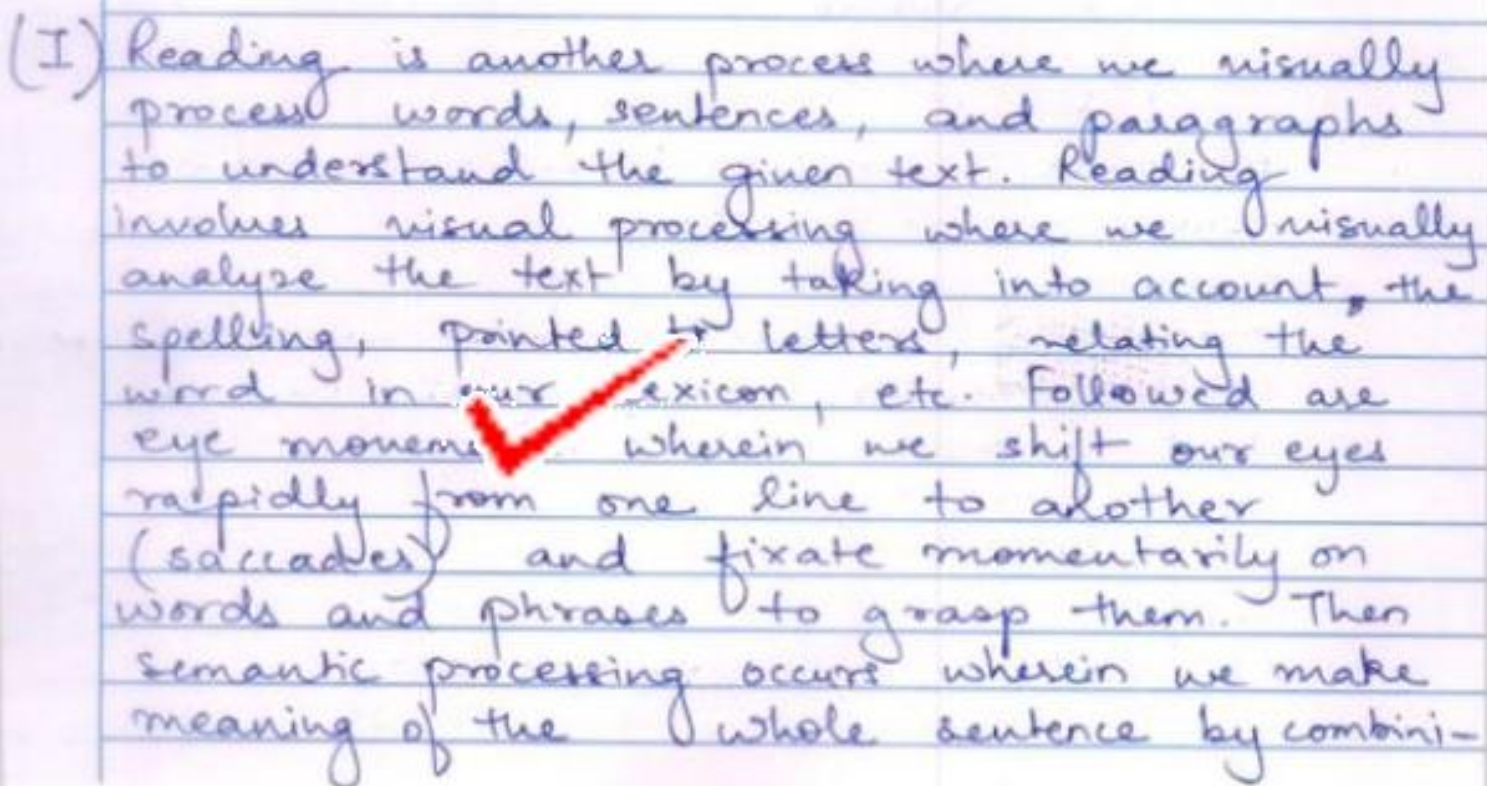 (I) Reading is another process where we visually
process words, sentences, and paragraphs
to understand the given text. Reading
involves visual processing where we visually
analyze the text by taking into account, the
spelling, printed letters, relating the
word in our lexicon, etc. Followed are
eye wherein we shift our eyes
rapidly from one line to another
(saccades) and fixate momentarily on
words and phrases to grasp them. Then
semantic processing occurs wherein we make
meaning of the whole sentence by combini-